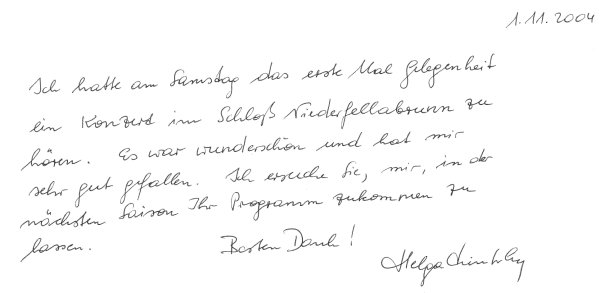 1.11.2004
Ich hatte am Samstag das erste Mal Gelegenheit
ein Konzert im Schloß Niederfellabrunn zu
hören. Es war wunderschön und hat mir
sehr gut gefallen. Ich ersuche Sie, mir, in der
nächsten Saison Ihr Programm zukommen zu
lassen. Besten Dank!
Helga